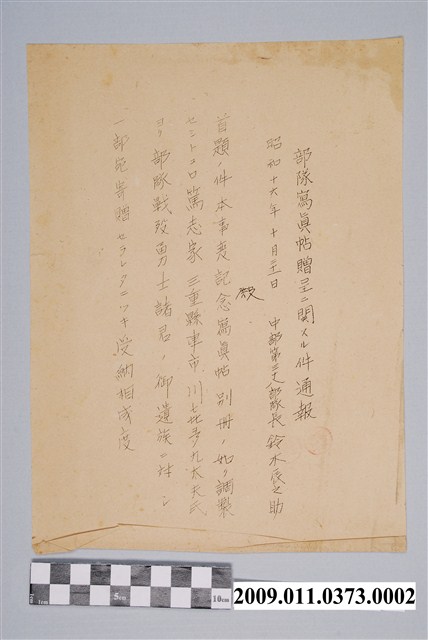 部隊寫眞帖贈呈ニ関スル件通報
昭和十六年十月三十一日 中部第三十八部隊長 鈴木辰之助
殿
首題ノ件本事変記念寫眞帖別冊ノ如ク調製
セントスル篤志家三重縣津市 川喜多久太夫氏
ヨリ部隊戦歿勇士諸君ノ御遺族ニ対シ
一部宛寄贈セラレタニツキ受納相成度
5cm
10cm
2009.011.0373.0002